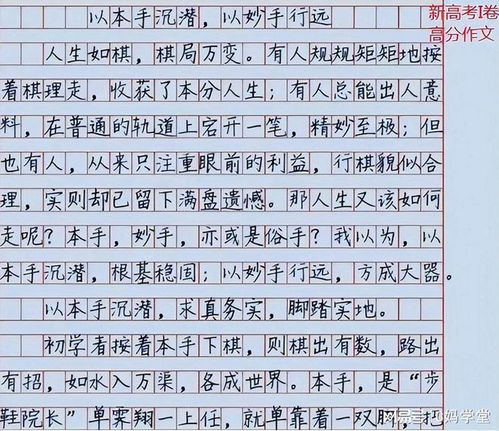 以本手沉潜，以妙手行远
新高考I卷
高分作文
人生如棋，棋局万变。有人规规矩矩地按
着棋理走，收获了本分人生；有人总能出人意
料，在普通的轨道上宕开一笔，精妙至极；但
也有人，从来只注重眼前的利益，行棋貌似合
理，实则却已留下满盘遗憾。那人生又该如何
走呢？本手，妙手，亦或是俗手？我以为，以
本手沉潜，根基稳固；以妙手行远，方成大器。
以本手沉潜，求真务实，脚踏实地。
初学者按着本手下棋，则棋出有数，路出
有招，如水入万渠，各成世界。本手，是“步
鞋院长”单霁翔一上任，就单靠着一双脚，把
搜狐号@妈学堂